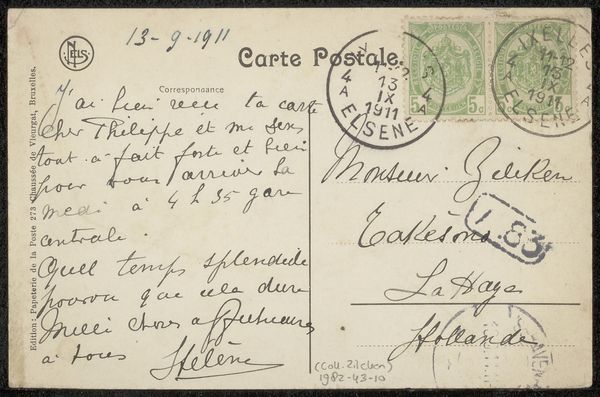 NELS
13-9-1911
Carte Postale.
Correspondance
J'ai bien reçu ta carte
cher Philippe et me sens
tout à fait forte et bien
pour vous arriver Sa
medi à 4 h 35 gare
centrale.
Quel temps splendide
pourvu que cela dure
Mille choses affectueuses
à tous
Hélène
Edition: Papeterie de la Poste 273 Chaussée de Vleurgat, Bruxelles.
5c 5c
13
IX
1911
4A ELSENE 4A
IXELLES
11-12
13
IX
1911
4A ELSENE
Monsieur Zilcken
L.83
La Haye
Hollande
(Coll. Zilcken)
1982-43-10